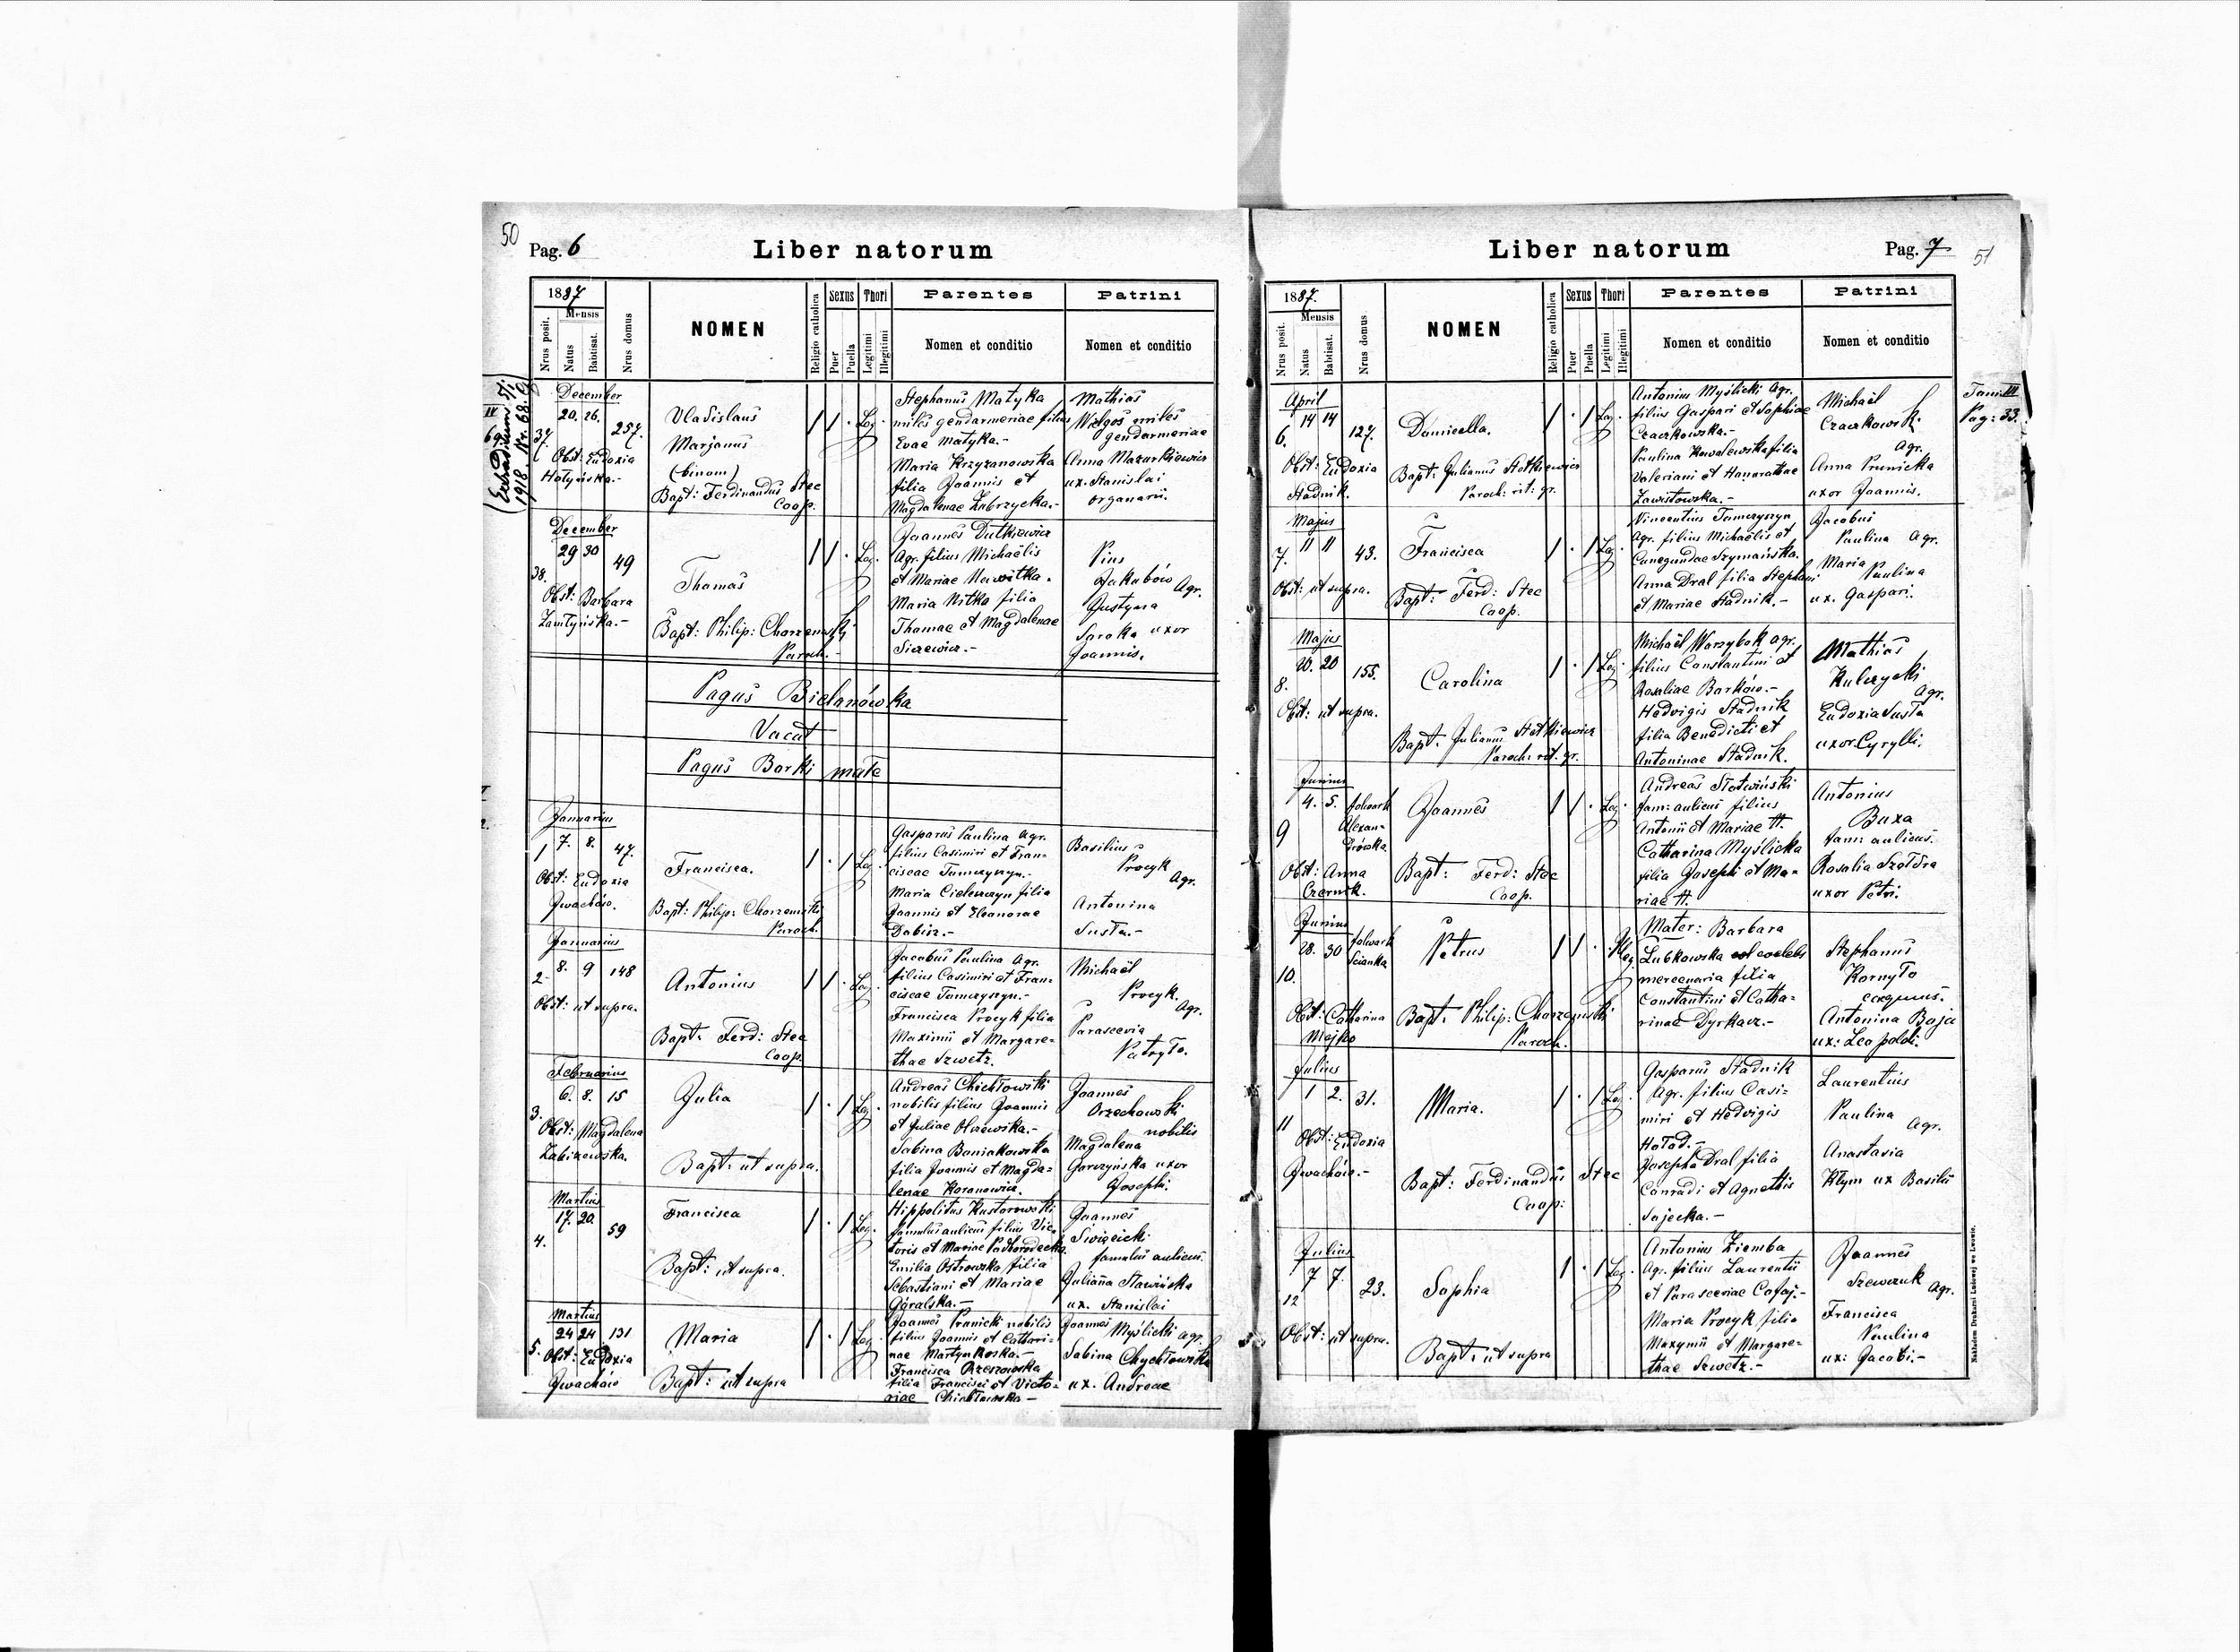 50
Pag. 6
Liber natorum
1887
Mensis
Nrus posit.
Natus
Babtisat.
Nrus domus
NOMEN
Religio catholica
Sexus
Puer
Puella
Thori
Legitimi
Illegitimi
Parentes
Nomen et conditio
Patrini
Nomen et conditio
(Extraditum 5/1
1918. Nr. 68.
December
20. 26.
37.
257.
Obst: Eudoxia
Hołyńska.-
Vladislaus
Marjanus
(binom)
Bapt: Ferdinandus Stec
Coop.
1 1 · Leg.
Stephanus Matyka
miles gendarmeriae filius
Evae Matyka.-
Maria Krzyżanowska
filia Joannis et
Magdalenae Zabrzycka.-
Mathias
Wielgos miles
gendarmeriae
Anna Mazurkiewicz
ux. Stanislai
organarii.
December
29 30
38.
49
Obst: Barbara
Zamłyńska.-
Thomas
Bapt: Philip: Chorzemski
Paroch.-
1 1 · Leg.
Joannes Dutkiewicz
Agr. filius Michaëlis
et Mariae Nawitka.
Maria Nitka filia
Thomae et Magdalenae
Siczewicz.-
Pius
Jakubów
Agr.
Justyna
Saroka uxor
Joannis.
Pagus Bielanówka
Vacat
Pagus Borki małe
Januarius
1 7. 8. 47.
Obst: Eudoxia
Iwachów.
Francisca.
Bapt: Philip: Chorzemski
Paroch.
1 · 1 Leg.
Gasparus Paulina Agr.
filius Casimiri et Fran=
ciscae Tomczyszyn.-
Maria Cielenczyn filia
Joannis et Eleonorae
Dabicz.-
Basilius
Procyk
Agr.
Antonina
Susła.-
Januarius
2 8. 9 148
Obst: ut supra.
Antonius
Bapt: Ferd: Stec
Coop.
1 1 · Leg.
Jacobus Paulina Agr.
filius Casimiri et Fran=
ciscae Tomczyszyn.-
Francisca Procyk filia
Maximii et Margare=
thae Szwetz.
Michaël
Procyk.
Agr.
Parascevia
Patryło.
Februarius
6. 8. 15
3.
Obst: Magdalena
Zabiżewska.
Julia
Bapt: ut supra.
1 · 1 Leg.
Andreas Chichłowski
nobilis filius Joannis
et Juliae Olszewska.-
Sabina Boniakowska
filia Joannis et Magda=
lenae Koranowicz.
Joannes
Orzechowski
nobilis
Magdalena
Garczyńska uxor
Josephi.
Martius
17. 20.
59
4.
Francisca
Bapt: ut supra.
1 · 1 Leg.
Hippolitus Kustorowski
famulus aulicus filius Vic=
toris et Mariae Podhorodecka.
Emilia Ostrowska filia
Sebastiani et Mariae
Góralska.-
Joannes
Święcicki
famulus aulicus.
Julianna Stawińska
ux. Stanislai
Martius
24 24 131
5. Obst: Eudoxia
Iwachów
Maria
Bapt: ut supra
1 · 1 Leg.
Joannes Pranicki nobilis
filius Joannis et Cathari=
nae Martynkoska.-
Francisca Orzeszowska
filia Francisci et Victo=
riae Chichłowska-
Joannes
Myślicki agr.
Sabina Chychłowska
ux. Andreae
Liber natorum
Pag. 7
51
1887.
Mensis
Nrus posit.
Natus
Babtisat.
Nrus domus
NOMEN
Religio catholica
Sexus
Puer
Puella
Thori
Legitimi
Illegitimi
Parentes
Nomen et conditio
Patrini
Nomen et conditio
April
14 14
6. 127.
Obst: Eudoxia
Stadnik.
Domicella.
Bapt: Julianus Stetkiewicz
Paroch: rit: gr.
1 · 1 Leg.
Antonius Myślicki Agr.
filius Gaspari et Sophiae
Czaczkowska.-
Paulina Kowalewska filia
Valeriani et Honorathae
Zawistowska.-
Michaël
Czaczkowski.
Agr.
Anna Prunicka
uxor Joannis.
Tom III
Pag: 33.
Majus
7. 11 11 43.
Obst: ut supra.
Francisca
Bapt: Ferd: Stec
Coop.
1 · 1 Leg.
Vincentius Tomczyszyn
Agr. filius Michaëlis et
Cunegundae Szymańska.
Anna Dral filia Stephani
et Mariae Stadnik.-
Jacobus
Paulina Agr.
Maria
Paulina
ux. Gaspari.
Majus
20. 20 155.
8.
Obst: ut supra.
Carolina
Bapt. Julianus Stetkiewicz
Paroch: rit. gr.
1 · 1 Leg.
Michaël Warzybok agr.
filius Constantini et
Rosaliae Barków.-
Hedvigis Stadnik
filia Benedicti et
Antoninae Stadnik.
Mathias
Kulczycki
Agr.
Eudoxia Susła
uxor Cyrylli.
Junius
4. 5. folwark
Alexan=
drówka
9
Obst: Anna
Czernik.
Joannes
Bapt: Ferd: Stec
Coop.
1 1 · Leg.
Andreas Słotwiński
fam: aulicus filius
Antonii et Mariae #.
Catharina Myślicka
filia Josephi et Ma=
riae #.
Antonius
Buxa
fam: aulicus.
Rosalia Szołdra
uxor Petri.
Junius
28. 30 folwark
Scianka
10.
Obst: Catharina
Mojsko
Petrus
Bapt: Philip: Chorzemski
Paroch.
1 1 · Illeg.
Mater: Barbara
Łubkowska coelebs
mercenaria filia
Constantini et Catha=
rinae Dyrkacz.-
Stephanus
Kornyło
Antonina Boja
ux: Leopoldi.
Julius
1 2. 31.
11
Obst: Eudoxia
Iwachów.-
Maria.
Bapt: Ferdinandus Stec
Coop:
1 · 1 Leg.
Gasparus Stadnik
Agr. filius Casi=
miri et Hedvigis
Hołod.-
Josepha Dral filia
Conradi et Agnethis
Sajecka.-
Laurentius
Paulina
Agr.
Anastasia
Kłym ux Basilii
Julius
7 7. 23.
12
Obst: ut supra.
Sophia
Bapt: ut supra
1 · 1 Leg.
Antonius Ziemba
Agr. filius Laurentii
et Parasceviae Cafaj.-
Maria Procyk filia
Maxymii et Margare=
thae Szwetz.-
Joannes
Szewczuk Agr.
Francisca
Paulina
ux: Jacobi.-
Nakładem Drukarni Ludowej we Lwowie.